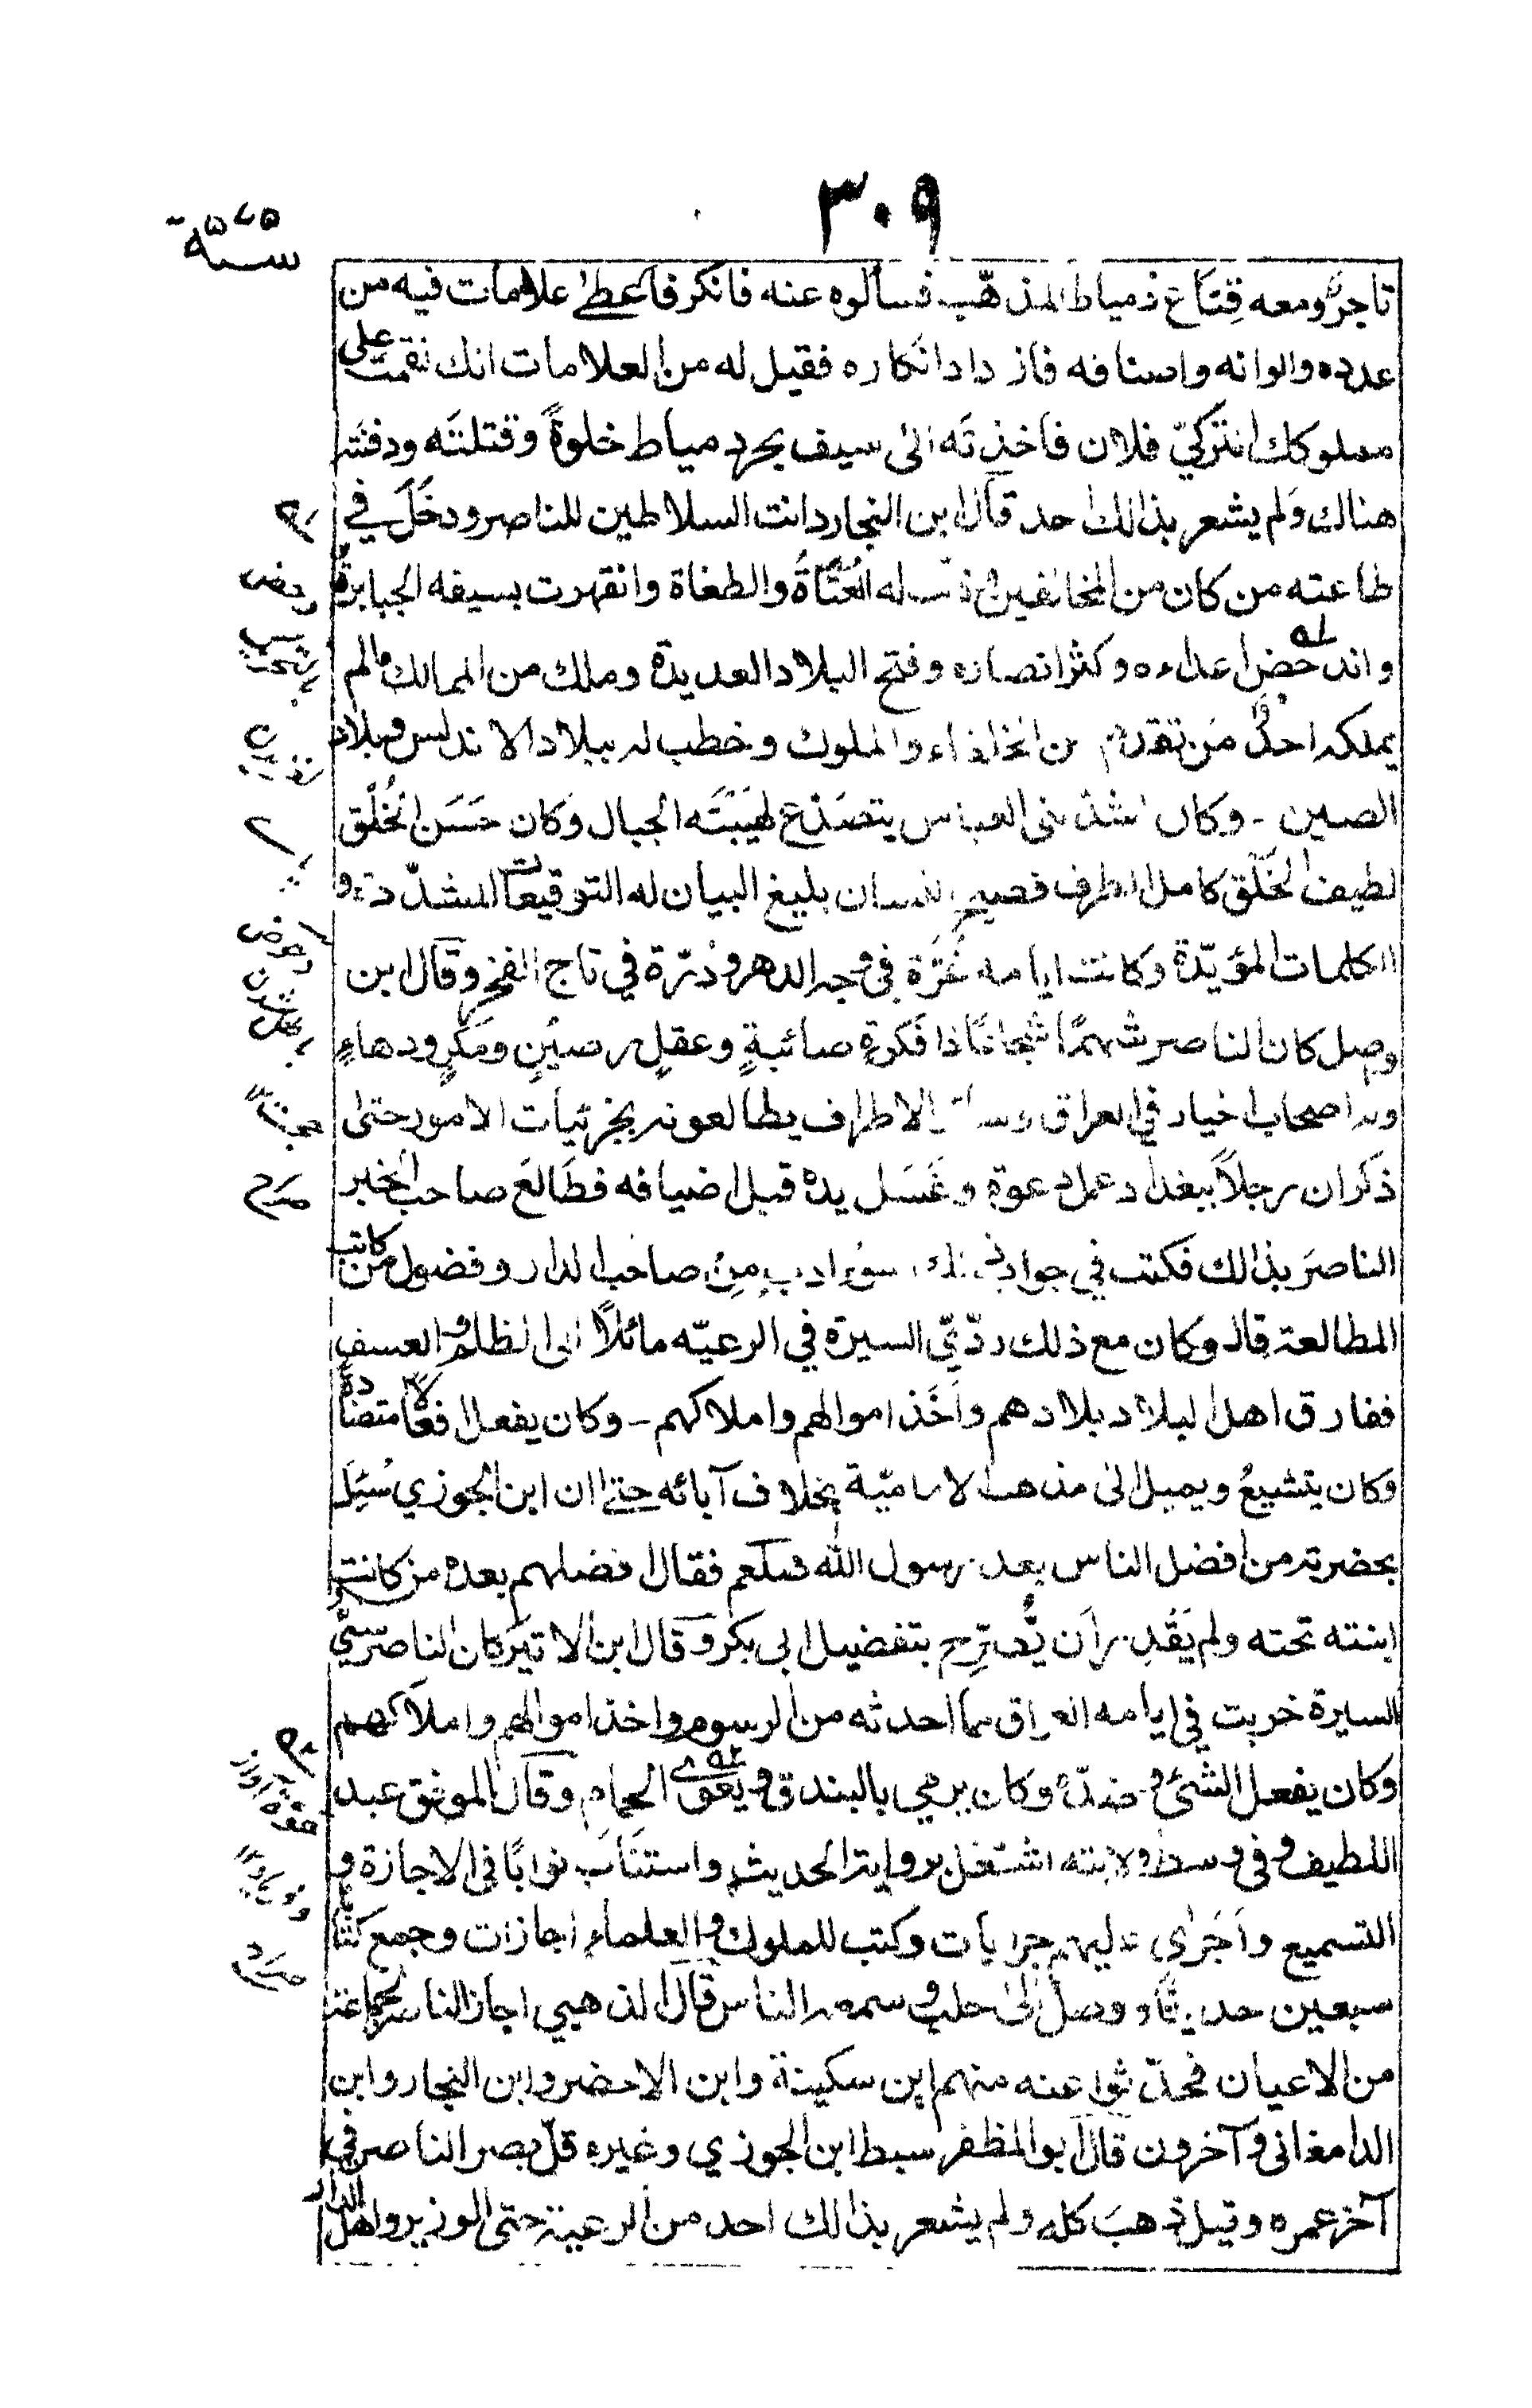 ٣٠٩
سنة ٥٧٥
تاجر ومعه متاع دمياط المذهّب فسألوه عنه فانكر فأعطى علامات فيه من
عدده والوانه واصنافه فازداد انكاره فقيل له من العلامات انك نقمت على
مملوكك التركيّ فلان فاخذته الى سيف بحر دمياط خلوةً وقتلتَه ودفنته
هناك ولم يشعر بذالك احد قال ابن النجار دانت السلاطين للناصر ودخَلَ في
طاعته من كان من المخالفين وذلّت له العُتَاةُ والطغاة وانقهرت بسيفه الجبابرة
واندحض اعداءه وكثر انصاره وفتح البلاد العديدة وملك من الممالك مالم
يملكه احدٌ من تقدم من الخلفاء والملوك وخطب له ببلاد الاندلس وبلاد
الصين - وكان اشد بنى العباس يتصدّع لهَيبَتَه الجبال وكان حَسَن الخُلُق
لطيف الخَلْق كامل الطرف فصيح اللسان بليغ البيان له التوقيعات المسدّدة و
الكلمات المؤيّدة وكانت ايامه غُرَّة في وجه الدهر ودُرّة في تاج الفخر وقال ابن
وصل كان الناصر شهمًا شجاعًا ذا فكرةٍ صائبةٍ وعقلٍ رصينٍ ومكرٍ ودهاءٍ
وله اصحاب اخبار في العراق وسائر الاطراف يطالعونه بجزئيات الامور حتى
ذكر ان رجلاً ببغداد عمل دعوة وغَسَل يده قبل اضيافه فطَالَعَ صاحب الخبر
الناصرَ بذالك فكتب في جواب ذلك سوء ادب من صاحب الدار وفضول من كاتب
المطالعة قال وكان مع ذلك ردّيَّ السيرة في الرعيّه مائلاً الى الظلم والعسف
ففارق اهل البلاد بلادهم وأَخَذ اموالهم واملاكهم - وكان يفعل افعالا متضادةً
وكان يتشيعُ ويميل الى مذهب الاماميّة بخلاف آبائه حتى ان ابن الجوزي سُئِلَ
بحضرته من افضل الناس بعد رسول الله صلعم فقال افضلهم بعده من كانت
ابنته تحته ولم يَقْدِر أَن يُّصَرِّح بتفضيل ابى بكر وقال ابن الاثير كان الناصر سيّئ
السيرة خربت في ايامه العراق مما احدثه من الرسوم واخذ اموالهم واملاكهم
وكان يفعل الشئ وضدّه وكان يرمي بالبندق ويغوى الحمام وقال الموفق عبد
اللطيف وفي وسط ولايته اشتغل برواية الحديث واستنَابَ نوابًا في الاجازة و
التسميع وأَجرى عليهم جرايات وكتب للملوك والعلماء اجازات وجمع كتابا
سبعين حديثًا ووصل الى حلب وسمعه الناس قال الذهبي اجاز الناصر لجماعة
من الاعيان فحدّثوا عنه منهم ابن سكينة وابن الاخضر وابن النجار وابن
الدامغانى وآخرون قال ابو المظفر سبط ابن الجوزي وغيره قلّ بصر الناصر في
آخر عمره وقيل ذهبَ كله ولم يشعر بذالك احد من الرعية حتى الوزير واهل الدار